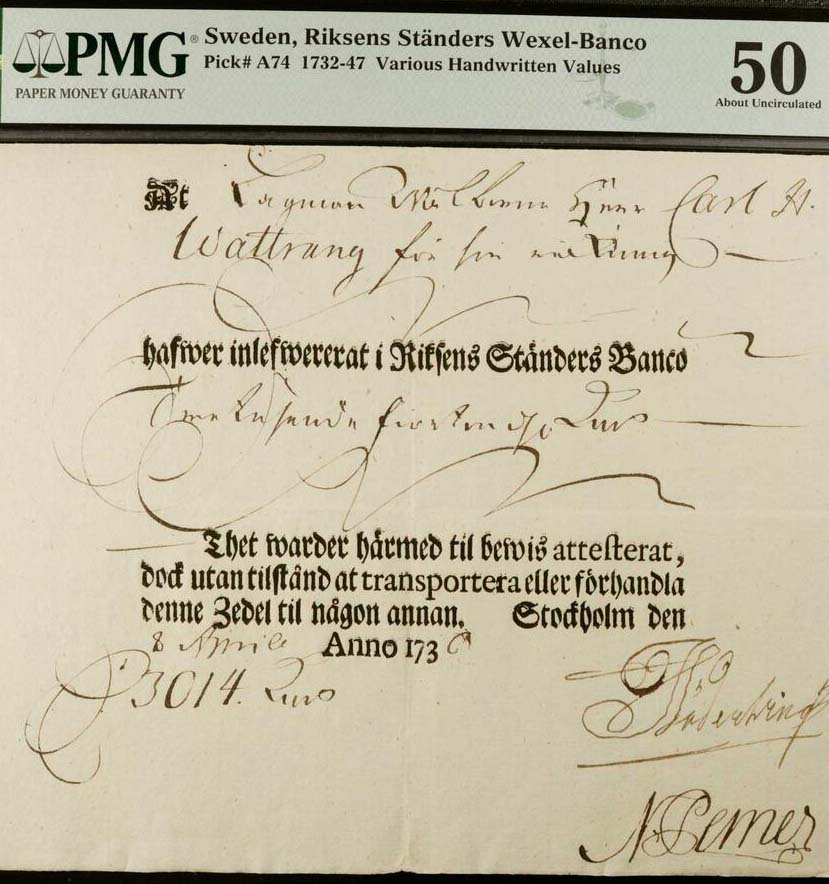 PMG® Sweden, Riksens Ständers Wexel-Banco
Pick# A74 1732-47 Various Handwritten Values
PAPER MONEY GUARANTY
50
About Uncirculated
At Lagman Herr Carl H.
Wattrang för
hafwer inlefwererat i Riksens Ständers Banco
Tree tusende fiorton
Thet warder härmed til bewis attesterat,
dock utan tilstånd at transportera eller förhandla
denne Zedel til någon annan. Stockholm den
8 Aprilis Anno 1736
3014.